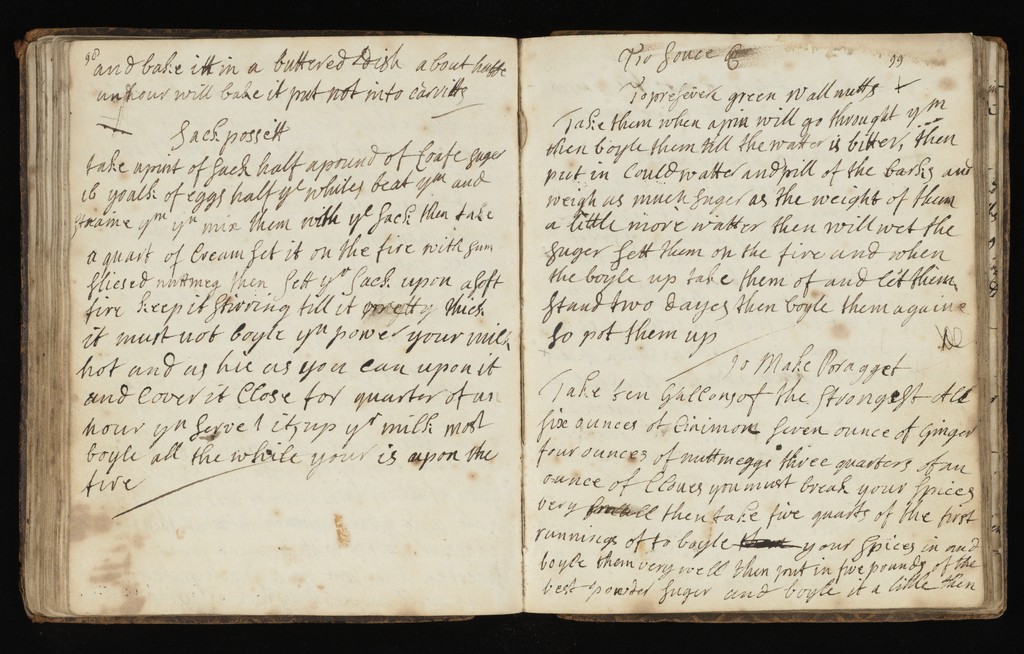 98
and bake itt in a buttered Dish about halfe
an hour will bake it put not into carvitts
Sack possett
take a pint of Sack half a pound of loafe suger
16 yoalks of eggs half ye whites beat ym and
straine ym yn mix them with ye Sack then take
a quart of Cream set it on the fire with sum
Sliesed nutmeg then sett yr Sack upon a soft
fire keep it stirring till it pretty thick
it must not boyle yn power your milk
hot and as hie as you can upon it
and Cover it Close for quarter of an
hour yn serve it up yr milk most
boyle all the while your is upon the
fire
To Souce
99
To preseven green Wallnutts
Take them when a pin will go throught ym
then boyle them till the watter is bitter, then
put in Could watter and pill of the barks and
weigh as much suger as the weight of them
a little more watter then will wet the
suger sett them on the fire and when
the boyle up take them of and let them
stand two dayes then boyle them againe
so pot them up
To Make Poragget
Take ten Gallons of the Strongest All
six ounces of Cinimom seven ounce of Ginger
four ounces of nuttmeggs three quarters of an
ounce of Cloves you must break your spices
very small then take five quarts of the first
runnings of to boyle your spices in and
boyle them very well then put in five pounds of the
best powder suger and boyle it a little then